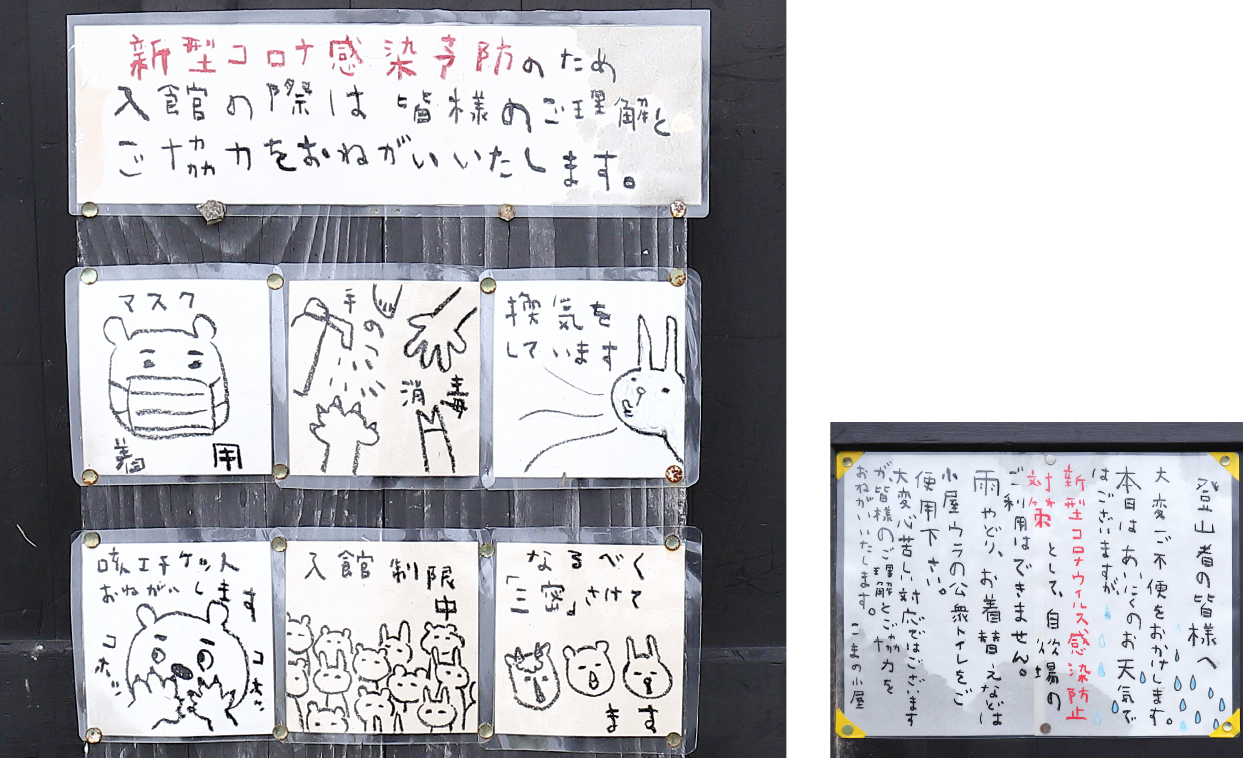 新型コロナ感染予防のため
入館の際は皆様のご理解と
ご協力をおねがいいたします。
マスク
着用
手の
消毒
換気を
しています
咳エチケット
おねがいします
コホッ
コホッ
入館制限
中
なるべく
「三密」さけて
ます
登山者の皆様へ
大変ご不便をおかけします。
本日はあいにくのお天気で
はございますが、
新型コロナウィルス感染防止
対策として、自炊場の
ご利用はできません。
雨やどり、お着替えなどは
小屋ウラの公衆トイレをご
使用下さい。
大変心苦しい対応ではございます
が、皆様のご理解とご協力を
おねがいいたします。
こまの小屋